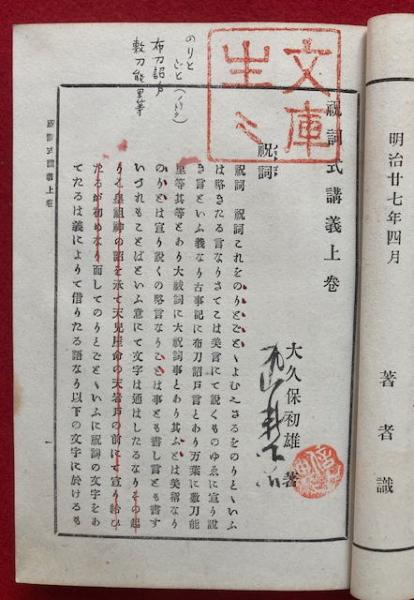 明治廿七年四月
著者識
文庫
生〻
祝詞式講義上巻
大久保初雄 著
祝詞
祝詞 祝詞これをのりとごとゝよむへきをのりとゝいふ
は略きたる言なりさてこは美言にて説くものゆゑに宣り説
き言といふ義なり古事記に布刀詔戸言とあり万葉に敷刀能
里等其等とあり大祓詞に大祝詞事とあり其ふとは美稱なり
のりとは宣り説くの略言なりことは事とも書し言とも書す
いづれもことばといふ意にて文字は通はしたるなりその起
りは皇祖神の詔を承て天兒屋命の天岩戸の前にて宣り給ひ
たるが初めなり而してのりとごとゝいふに祝詞の文字をあ
てたるは義によりて借りたる語なり以下の文字に於けるも
のりと
ごと
布刀詔戸
敷刀能里等
祝詞式講義上巻
一